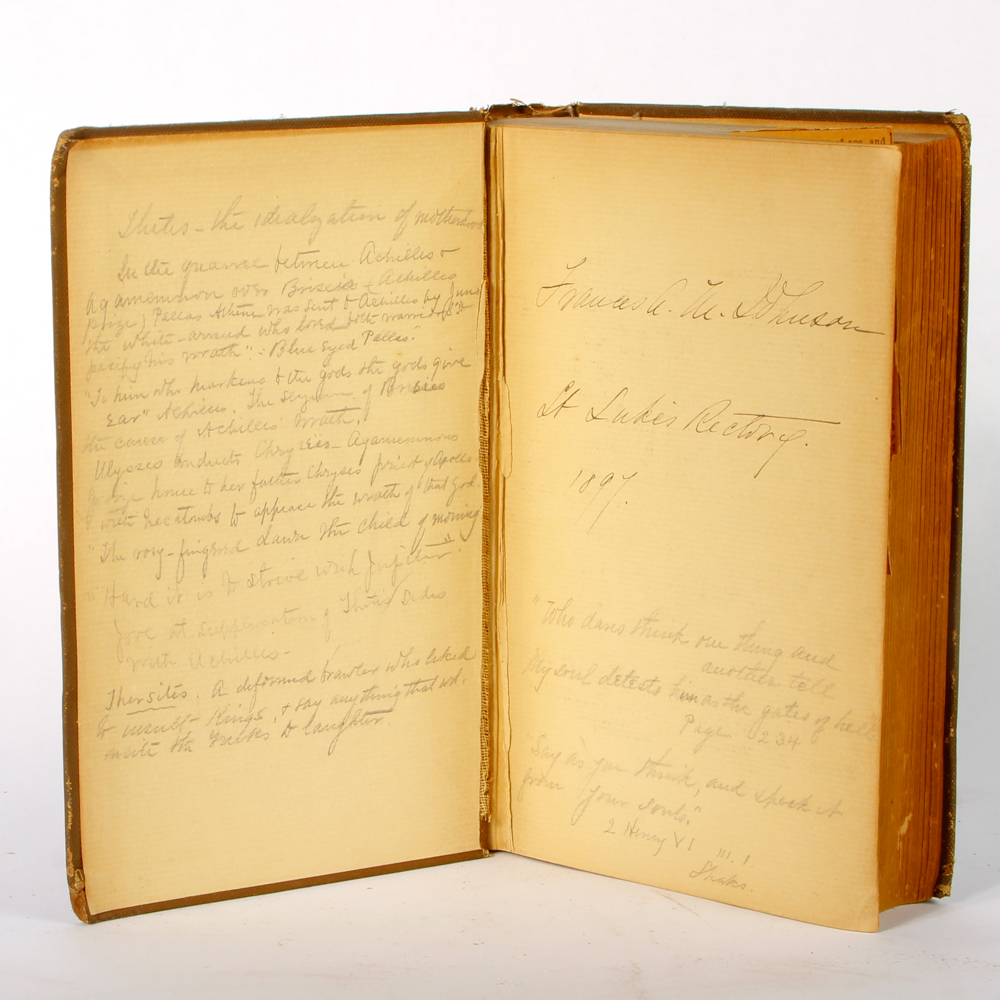 Thetis - the idealization of motherhood
In the quarrel between Achilles &
Agamemnon over Briseis - Achilles
prize, Pallas Athene was sent to Achilles by Juno
the white-armed who loved both warriors to
pacify his wrath". - Blue eyed Pallas."
"To him who harkens to the gods the gods give
ear" Achilles. The seizure of Briseis
the cause of Achilles' wrath.
Ulysses conducts Chryseis - Agamemnons
prize home to her father Chryses priest of Apollo
with hecatombs to appease the wrath of that God.
"The rosy-fingered dawn the child of morning
"Hard it is to strive with Jupiter".
Jove at supplication of Thetis sides
with Achilles -
Thersites. A deformed brawler who liked
to insult Kings, & say anything that wd.
incite the Greeks to laughter.
Frances A. M. Johnson
St Luke's Rectory.
1897.
"Who dares think one thing and
another tell
My soul detests him as the gates of hell
Page 234
"Say as you think, and speak it
from your souls."
2 Henry VI III. 1.
Shaks.
and